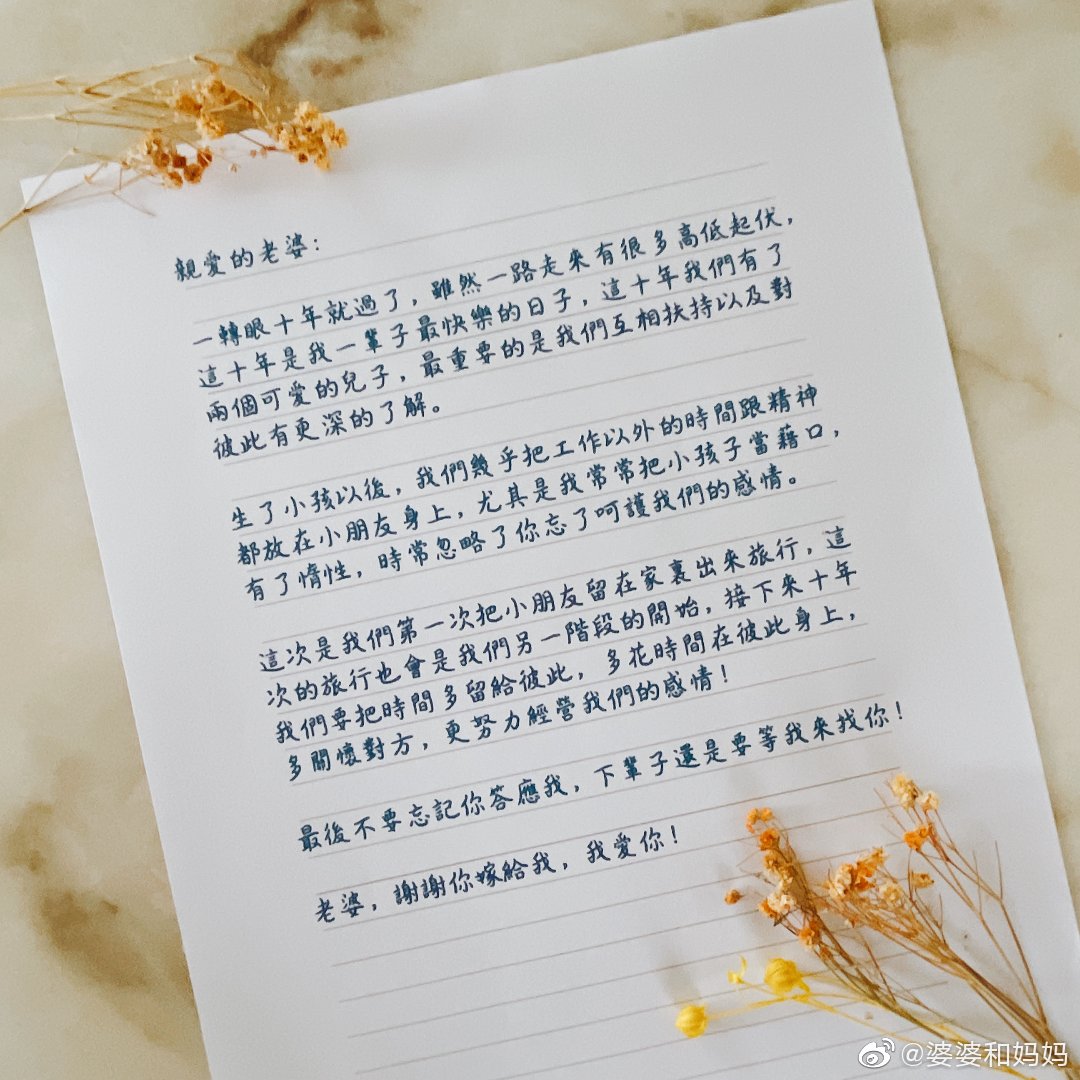 親愛的老婆：
一轉眼十年就過了，雖然一路走來有很多高低起伏，
這十年是我一輩子最快樂的日子，這十年我們有了
兩個可愛的兒子，最重要的是我們互相扶持以及對
彼此有更深的了解。
生了小孩以後，我們幾乎把工作以外的時間跟精神
都放在小朋友身上，尤其是我常常把小孩子當藉口，
有了惰性，時常忽略了你忘了呵護我們的感情。
這次是我們第一次把小朋友留在家裏出來旅行，這
次的旅行也會是我們另一階段的開始，接下來十年
我們要把時間多留給彼此，多花時間在彼此身上，
多關懷對方，更努力經營我們的感情！
最後不要忘記你答應我，下輩子還是要等我來找你！
老婆，謝謝你嫁給我，我愛你！
@婆婆和妈妈